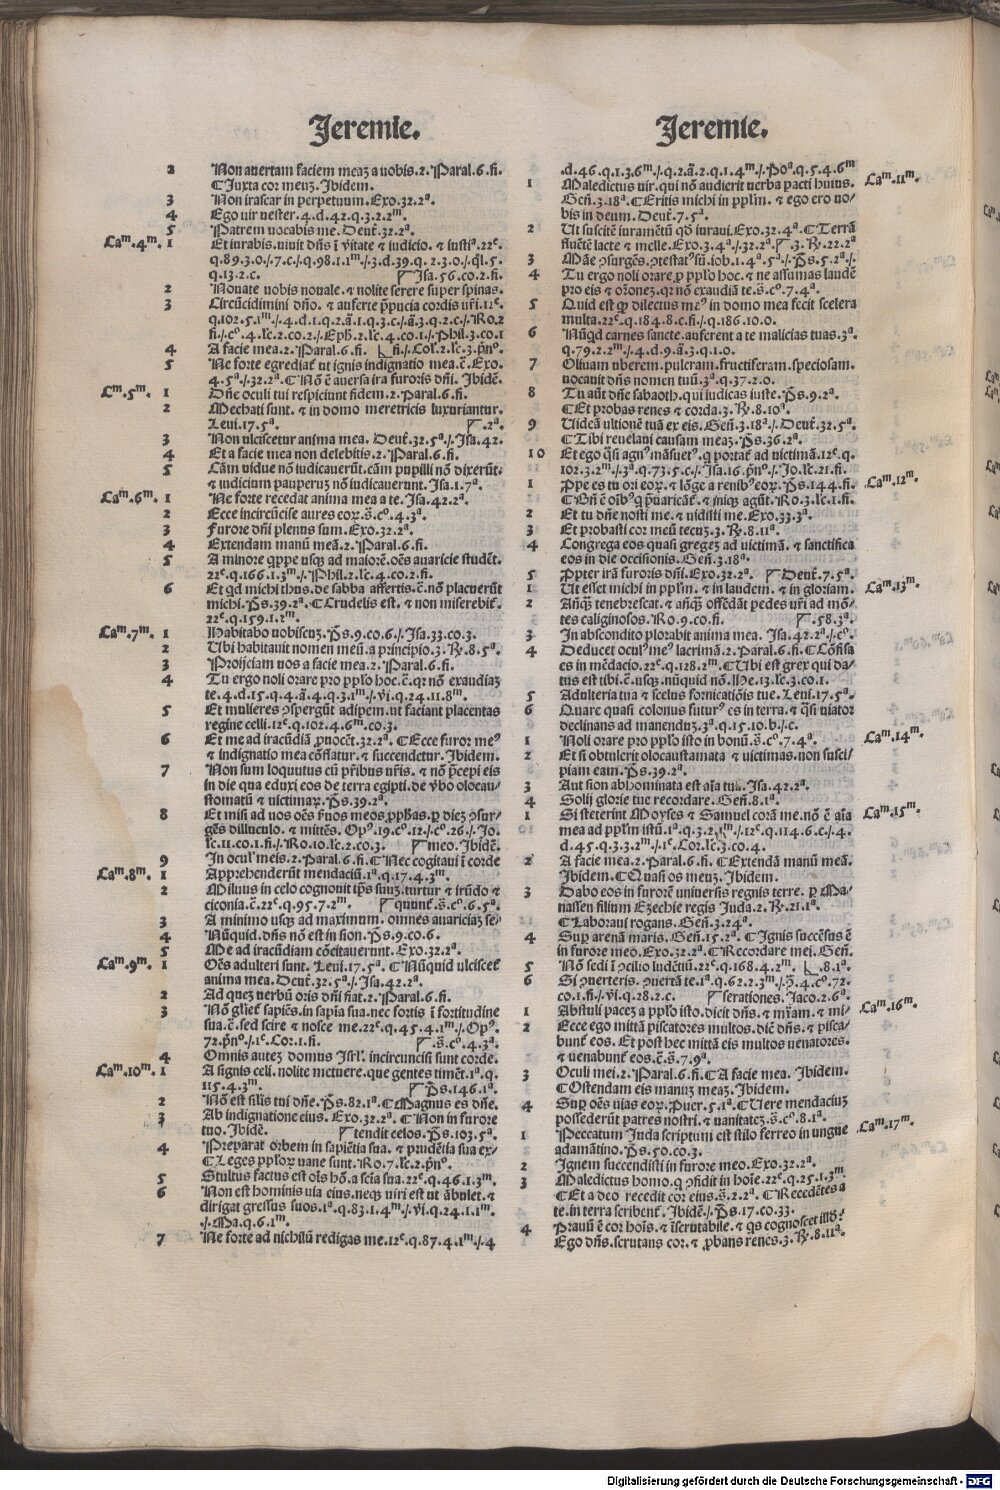 Jeremie.
2 Non avertam faciem meaʒ a uobis.2.Paral.6.fi.
¶Iuxta cor meuʒ.Ibidem.
3 Non irascar in perpetuum.Exo.32.2ª.
4 Ego uir uester.4.d.42.q.3.2.2ᵐ.
5 Patrem uocabis me.Deut̃.32.2ª.
Caᵐ.4ᵐ. 1 Et iurabis.uiuit dñs ĩ v̾itate ⁊ iudicio.⁊ iustiª.22ᵉ.
q.89.3.0./.7.c./.q.98.1.1ᵐ./.3.d.39.q.2.3.0./.ql̃.5.
q.13.2.c. Isa.56.co.2.fi.
2 Nouate uobis nouale.⁊ nolite serere super spinas.
3 Circũcidimini dño.⁊ auferte p̱pucia cordis ur̃i.12ᵉ.
q.102.5.1ᵐ./.4.d.1.q.2.ã.1.q.3.c./.ã.3.q.2.c./.Ro.2
fi./.c°.4.lc̃.2.co.2./.Eph̃.2.lc̃.4.co.1./.Phil.3.co.1
4 A facie mea.2.Paral.6.fi. fi./.Col̃.2.lc̃.3.p̃nº.
5 Ne forte egrediat᷑ ut ignis indignatio mea.c̃.Exo.
4.5ª./.32.2ª.¶Nõ ẽ auersa ira furoris dñi.Ibidẽ.
Caᵐ.5ᵐ. 1 Dñe oculi tui respiciunt fidem.2.Paral.6.fi.
2 Mechati sunt.⁊ in domo meretricis luxuriantur.
Leui.17.5ª. .2ª.
3 Non ulciscetur anima mea.Deut̃.32.5ª./.Isa.42.
4 Et a facie mea non delebitis.2.Paral.6.fi.
5 Cãm uidue nõ iudicauerũt.cãm pupilli nõ dixerũt.
⁊ iudicium pauperuʒ nõ iudicauerunt.Isa.1.7ª.
Caᵐ.6ᵐ. 1 Ne forte recedat anima mea a te.Isa.42.2ª.
2 Ecce incircũcise aures eoꝝ.s̃.c°.4.3ª.
3 Furore dñi plenus sum.Exo.32.2ª.
4 Extendam manũ meã.2.Paral.6.fi.
5 A minore qꝓpe usqʒ ad maiorẽ.oẽs auaricie studẽt.
22ᵉ.q.166.1.3ᵐ./.Phil.2.lc̃.4.co.2.fi.
6 Et qd michi thus.de sabba affertis.c̃.nõ placuerũt
michi.Ps̃.39.2ª.¶Crudelis est.⁊ non miserebit᷑.
22ᵉ.q.159.1.2ᵐ.
Caᵐ.7ᵐ. 1 Habitabo uobiscuʒ.Ps̃.9.co.6./.Isa.33.co.3.
2 Ubi habitauit nomen meũ.a principio.3.Ry.8.5ª.
3 Proijciam uos a facie mea.2.Paral.6.fi.
4 Tu ergo noli orare pro pplo hoc.c̃.qꝛ nõ exaudiaʒ
te.4.d.15.q.4.ã.4.q.3.1ᵐ./.vi̾.q.24.11.8ᵐ.
5 Et mulieres ɔspergũt adipem.ut faciant placentas
regine celli.12ᵉ.q.102.4.6ᵐ.co.3.
6 Et me ad iracũdiã ꝓuocẽt.32.2ª.¶Ecce furor me⁹
⁊ indignatio mea cõflatur.⁊ succendetur.Ibidem.
7 Non sum loquutus cũ pr̃ibus ur̃is.⁊ nõ p̃cepi eis
in die qua eduxi eos de terra egipti.de v̾bo olocau/
stomatũ ⁊ uictimaꝝ.Ps̃.39.2ª.
8 Et misi ad uos oẽs s̾uos meos ꝓph̃as.ꝑ dieʒ ɔsur/
gẽs dilluculo.⁊ mittẽs.Op⁹.19.c°.12./.c°.26./.Io.
lc̃.11.co.1.fi./.Ro.10.lc̃.2.co.3. meo.Ibidẽ.
9 In ocul⁹ meis.2.Paral.6.fi.¶Nec cogitaui ĩ corde
Caᵐ.8ᵐ. 1 Apprehenderũt mendaciũ.1ª.q.17.4.3ᵐ.
2 Miluus in celo cognouit tp̃s suuʒ.turtur ⁊ irũdo ⁊
ciconia.c̃.22ᵉ.q.95.7.2ᵐ. quunt᷑.s̃.c°.6.5ª.
3 A minimo usqʒ ad maximum.omnes auariciaʒ se/
4 Nũquid.dñs nõ est in sion.Ps̃.9.co.6.
5 Me ad iracũdiam cõcitauerunt.Exo.32.2ª.
Caᵐ.9ᵐ. 1 Oẽs adulteri sunt.Leui.17.5ª.¶Nũquid ulciscet᷑
anima mea.Deut̃.32.5ª./.Isa.42.2ª.
2 Ad queʒ uerbũ oris dñi fiat.2.Paral.6.fi.
3 Nõ gliet᷑ sapiẽs.in sapia sua.nec fortis ĩ fortitudine
sua.c̃.sed scire ⁊ nosce me.22ᵉ.q.45.4.1ᵐ./.Op⁹.
72.p̃nº./.1ᵉ.Cor.1.fi. .s̃.c°.4.3ª.
4 Omnis auteʒ domus Isrl̃.incircuncisi sunt corde.
Caᵐ.10ᵐ. 1 A signis celi.nolite metuere.que gentes timẽt.1ª.q.
115.4.3ᵐ. Ps̃.146.1ª.
2 Nõ est silis tui dñe.Ps̃.82.1ª.¶Magnus es dñe.
3 Ab indignatione eius.Exo.32.2ª.¶Non in furore
tuo.Ibidẽ. tendit celos.Ps̃.103.5ª.
4 Preparat orbem in sapiẽtia sua.⁊ prudẽtia sua ex/
¶Leges pploꝝ uane sunt.Ro.7.lc̃.2.p̃nº.
5 Stultus factus est ois hõ.a scĩa sua.22ᵉ.q.46.1.3ᵐ.
6 Non est hominis uia eius.neqʒ uiri est ut ãbulet.⁊
dirigat gressus suos.1ª.q.83.1.4ᵐ./.vi̾.q.24.1.1ᵐ.
./.Ma.q.6.1ᵐ.
7 Ne forte ad nichilũ redigas me.12ᵉ.q.87.4.1ᵐ./.4
Jeremie.
.d.46.q.1.3.6ᵐ./.q.2.ã.2.q.1.4ᵐ./.Põª.q.5.4.6ᵐ
1 Maledictus uir.qui nõ audierit uerba pacti huius. Caᵐ.11ᵐ.
Geñ.3.18ª.¶Eritis michi in pplm̃.⁊ ego ero uo/
bis in deum.Deut̃.7.5ª.
2 Ut suscitẽ iuramẽtũ qd iuraui.Exo.32.4ª.¶Terrã
fluẽtẽ lacte ⁊ melle.Exo.3.4ª./.32.2ª. .3.Ry.22.2ª
3 Mãe ɔsurgẽs.ɔtestat⁹ sũ.iob.1.4ª.5ª./.Ps̃.5.2ª./.
4 Tu ergo noli orare ꝓ pplo hoc.⁊ ne assumas laudẽ
pro eis ⁊ orõneʒ.qꝛ nõ exaudiã te.s̃.c°.7.4ª.
5 Quid est qꝙ dilectus me⁹ in domo mea fecit scelera
multa.22ᵉ.q.184.8.c.fi./.q.186.10.0.
6 Nũqd carnes sancte.auferent a te malicias tuas.3ª.
q.79.2.2ᵐ./.4.d.9.ã.3.q.1.0.
7 Oliuam uberem.pulcram.fructiferam.speciosam.
uocauit dñs nomen tuũ.3ª.q.37.2.0.
8 Tu aũt dñe sabaoth.qui iudicas iuste.Ps̃.9.2ª.
¶Et probas renes ⁊ corda.3.Ry.8.10ª.
9 Uideã ultionẽ tuã ex eis.Geñ.3.18ª./.Deut̃.32.5ª.
¶Tibi reuelaui causam meaʒ.Ps̃.36.2ª.
10 Et ego q̃si agn⁹ mãsuet⁹.q̱ portat᷑ ad uictimã.12ᵉ.q.
102.3.2ᵐ./.3ª.q.73.5.c./.Isa.16.p̃nº./.Io.lc̃.21.fi.
1 Ppe es tu ori eoꝝ.⁊ lõge a renib⁹ eoꝝ.Ps̃.144.fi. Caᵐ.12ᵐ.
¶Bñ ẽ oĩb⁹ q̱ p̃uaricãt᷑.⁊ iniqʒ agũt.Ro.3.lc̃.1.fi.
2 Et tu dñe nosti me.⁊ uidisti me.Exo.33.3ª.
3 Et probasti cor meũ tecuʒ.3.Ry.8.11ª.
4 Congrega eos quasi gregeʒ ad uictimã.⁊ sanctifica
eos in die occisionis.Geñ.3.18ª.
5 Ppter irã furoris dñi.Exo.32.2ª. Deut̃.7.5ª.
1 Ut esset michi in pplm̃.⁊ in laudem.⁊ in gloriam. Caᵐ.13ᵐ.
2 Añqʒ tenebrescat.⁊ añqʒ offẽdãt pedes ur̃i ad mõ/
tes caliginosos.Ro.9.co.fi. .58.3ª.
3 In abscondito plorabit anima mea.Isa.42.2ª./.c°.
4 Deducet ocul⁹ me⁹ lacrimã.2.Paral.6.fi.¶Cõfisa
es in mẽdacio.22ᵉ.q.128.2ᵐ.¶Ubi est grex qui da/
tus est tibi.c̃.usqʒ.nũquid nõ.He.13.lc̃.3.co.1.
5 Adulteria tua ⁊ scelus fornicatiõis tue.Leui.17.5ª.
6 Quare quasi colonus futur⁹ es in terra.⁊ q̃si uiator
declinans ad manenduʒ.3ª.q.15.10.b./.c.
1 Noli orare pro pplo isto in bonũ.s̃.c°.7.4ª. Caᵐ.14ᵐ.
2 Et si obtulerit olocaustamata ⁊ uictimas.non susci/
piam eam.Ps̃.39.2ª.
3 Aut sion abhominata est aĩa tua.Isa.42.2ª.
4 Solij glorie tue recordare.Geñ.8.1ª.
1 Si steterint Moyses ⁊ Samuel corã me.nõ ẽ aĩa Caᵐ.15ᵐ.
mea ad pplm̃ istũ.1ª.q.3.2.ᵐ./.12ᵉ.q.114.6.c./.4.
d.45.q.3.3.2ᵐ./.1ᵉ.Cor.lc̃.3.co.4.
2 A facie mea.2.Paral.6.fi.¶Extendã manũ meã.
Ibidem.¶Quasi os meuʒ.Ibidem.
3 Dabo eos in furorẽ uniuersis regnis terre.ꝑ Ma/
nassen filium Eʒechie regis Iuda.2.Ry.21.1ª.
¶Laboraui rogans.Geñ.3.24ª.
4 Suꝑ arenã maris.Geñ.15.2ª.¶Ignis succẽsus ẽ
in furore meo.Exo.32.2ª.¶Recordare mei.Geñ.
5 Nõ sedi ĩ ɔcilio ludẽtiũ.22ᵉ.q.168.4.2ᵐ. .8.1ª.
6 Si ɔuerteris.ɔuertã te.1ª.q.62.2.3ᵐ./.q̃.4.c°.72.
co.1.fi./.vi̾.q.28.2.c. serationes.Iaco.2.6ª.
1 Abstuli paceʒ a pplo isto.dicit dñs.⁊ mĩam.⁊ mi/ Caᵐ.16ᵐ.
2 Ecce ego mittã piscatores multos.diẽ dñs.⁊ pisca/
bunt᷑ eos.Et post hec mittã eis multos uenatores.
⁊ uenabunt᷑ eos.c̃.s̃.7.9ª.
3 Oculi mei.2.Paral.6.fi.¶A facie mea.Ibidem.
¶Ostendam eis manuʒ meaʒ.Ibidem.
4 Suꝑ oẽs uias eoꝝ.Puer.5.1ª.¶Uere mendaciuʒ
possederũt patres nostri.⁊ uanitateʒ.s̃.c°.8.1ª.
1 Peccatum Iuda scriptum est stilo ferreo in ungue Caᵐ.17ᵐ.
adamãtino.Ps̃.50.co.3.
2 Ignem succendisti in furore meo.Exo.32.2ª.
3 Maledictus homo.q̱ ɔfidit in hoĩe.22ᵉ.q.25.1.3ᵐ.
¶Et a deo recedit cor eius.s̃.2.2ª.¶Recedẽtes a
te.in terra scribent᷑.Ibidẽ./.Ps̃.17.co.33.
4 Prauũ ẽ cor hoĩs.⁊ ĩscrutabile.⁊ qs cognoscet illð:
Ego dñs.scrutans cor.⁊ ꝓbans renes.3.Ry.8.11ª.
Digitalisierung gefördert durch die Deutsche Forschungsgemeinschaft - DFG